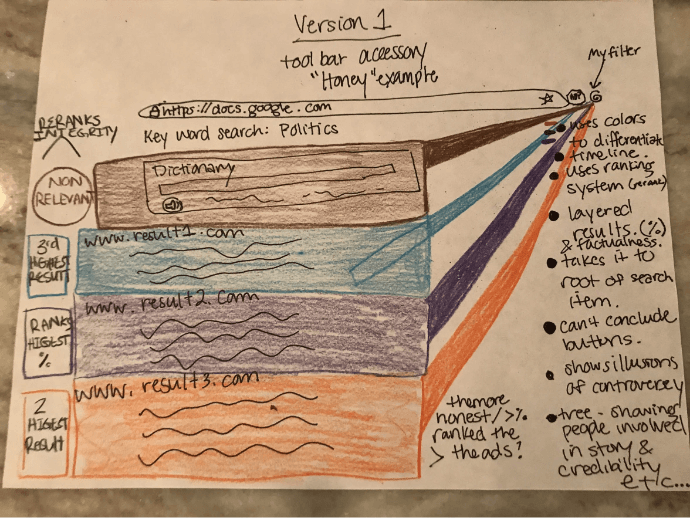 Version 1
tool bar accessory
"Honey" example
My filter
https://docs.google.com
Key word search: Politics
RERANKS
INTEGRITY
NON
RELEVANT
Dictionary
3rd
HIGHEST
RESULT
www.result1.com
RANKS
HIGEST
%
www.result2.com
2
HIGEST
RESULT
www.result3.com
the more
honest/>%
ranked the
> the ads?
uses colors
to differentiate
timeline.
uses ranking
system
layered
results. (%)
& factualness.
takes it to
root of search
item.
can + conclude
buttons.
shows illusions
of controvercy
tree - showing
people involved
in story &
credibility
etc...